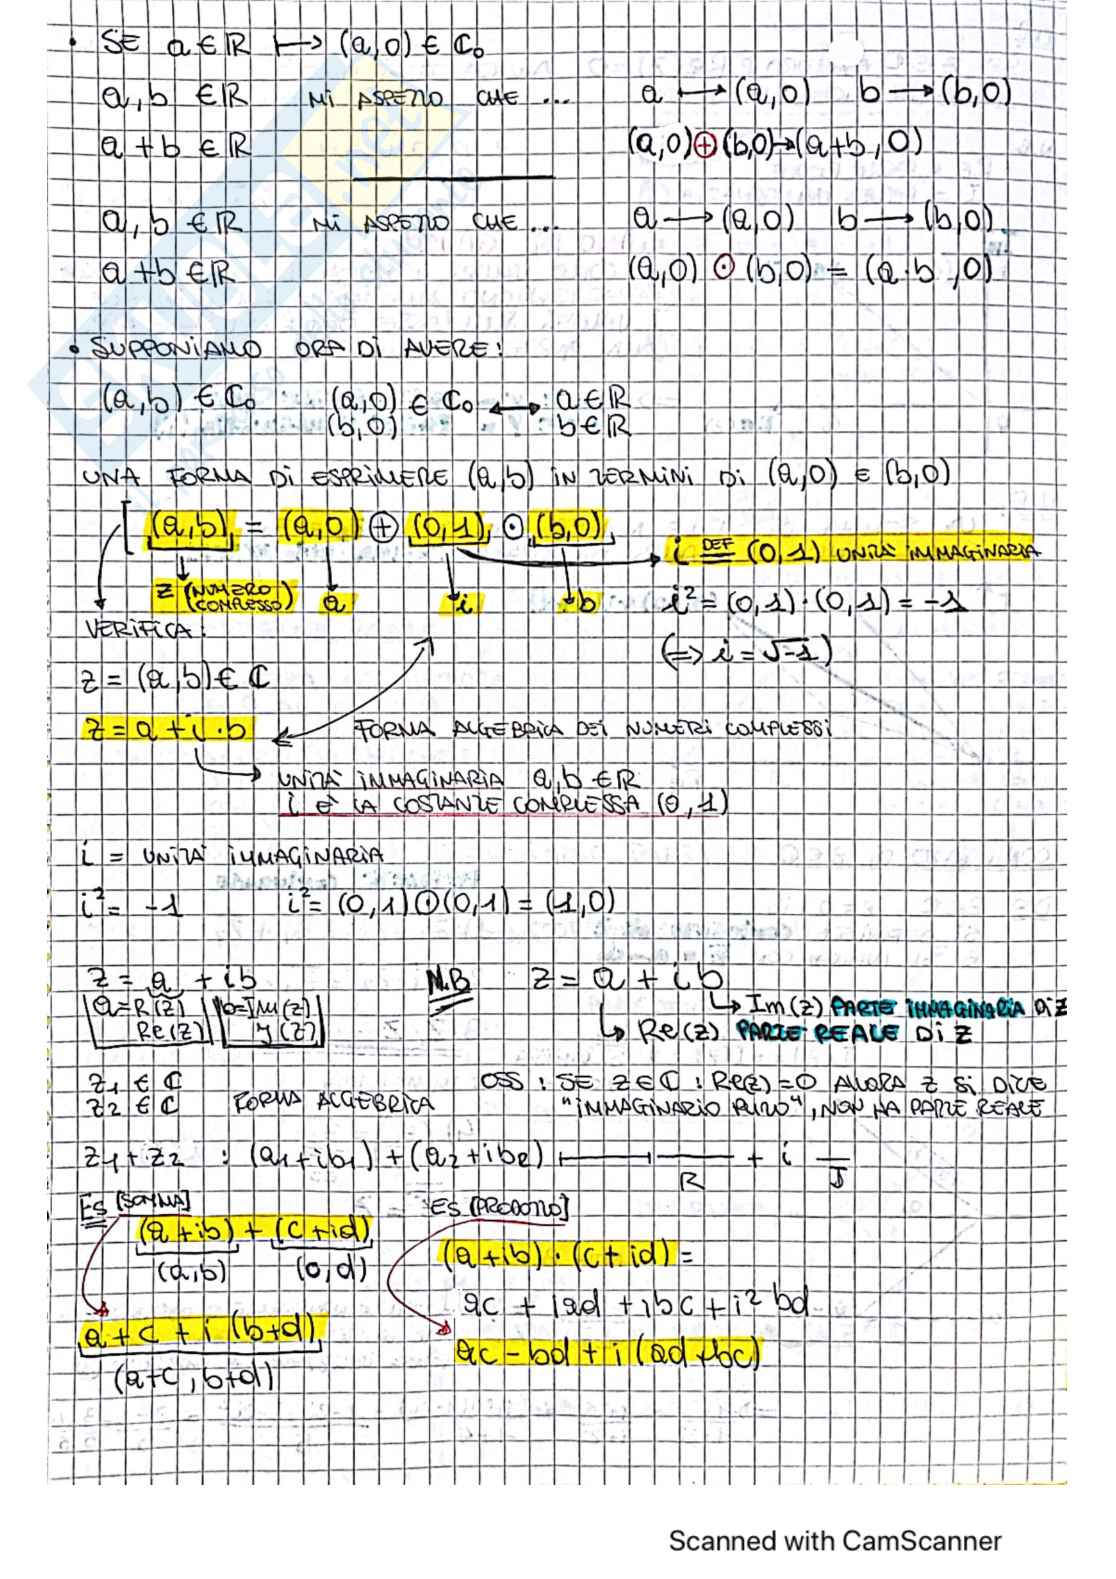 • SE a ∈ ℝ ↦ (a,0) ∈ ℂ₀
a, b ∈ ℝ MI ASPETTO CHE ... a ↦ (a,0) b → (b,0)
a + b ∈ ℝ (a,0) ⊕ (b,0) → (a+b, 0)
a, b ∈ ℝ MI ASPETTO CHE ... a → (a,0) b → (b,0)
a + b ∈ ℝ (a,0) ⊙ (b,0) = (a·b, 0)
• SUPPONIAMO ORA DI AVERE:
(a,b) ∈ ℂ₀ (a,0) ∈ ℂ₀ ↔ a ∈ ℝ
(b,0) b ∈ ℝ
UNA FORMA DI ESPRIMERE (a,b) IN TERMINI DI (a,0) E (b,0)
(a,b) = (a,0) ⊕ (0,1) ⊙ (b,0)
i DEF = (0,1) UNITA' IMMAGINARIA
z (NUMERO COMPLESSO) a i b i² = (0,1)·(0,1) = -1
VERIFICA:
(=> i = √-1)
z = (a,b) ∈ ℂ
z = a + i·b FORMA ALGEBRICA DEI NUMERI COMPLESSI
UNITA' IMMAGINARIA a,b ∈ ℝ
i E' LA COSTANTE COMPLESSA (0,1)
i = UNITA' IMMAGINARIA
i² = -1 i² = (0,1) ⊙ (0,1) = (1,0)
z = a + ib N.B z = a + ib
a = R(z) b = Im(z) Im(z) PARTE IMMAGINARIA DI Z
Re(z) y(z) Re(z) PARTE REALE DI Z
z₁ ∈ ℂ OSS: SE z ∈ ℂ : Re(z) = 0 ALLORA z SI DICE
z₂ ∈ ℂ FORMA ALGEBRICA "IMMAGINARIO PURO", NON HA PARTE REALE
z₁ + z₂ : (a₁ + ib₁) + (a₂ + ib₂) ⊢ — + i —
R J
ES [SOMMA] ES [PRODOTTO]
(a + ib) + (c + id)
(a,b) (0,d)
(a + ib) · (c + id) =
ac + iad + ibc + i² bd
a + c + i (b+d)
ac - bd + i (ad + bc)
(a+c, b+d)
Scanned with CamScanner